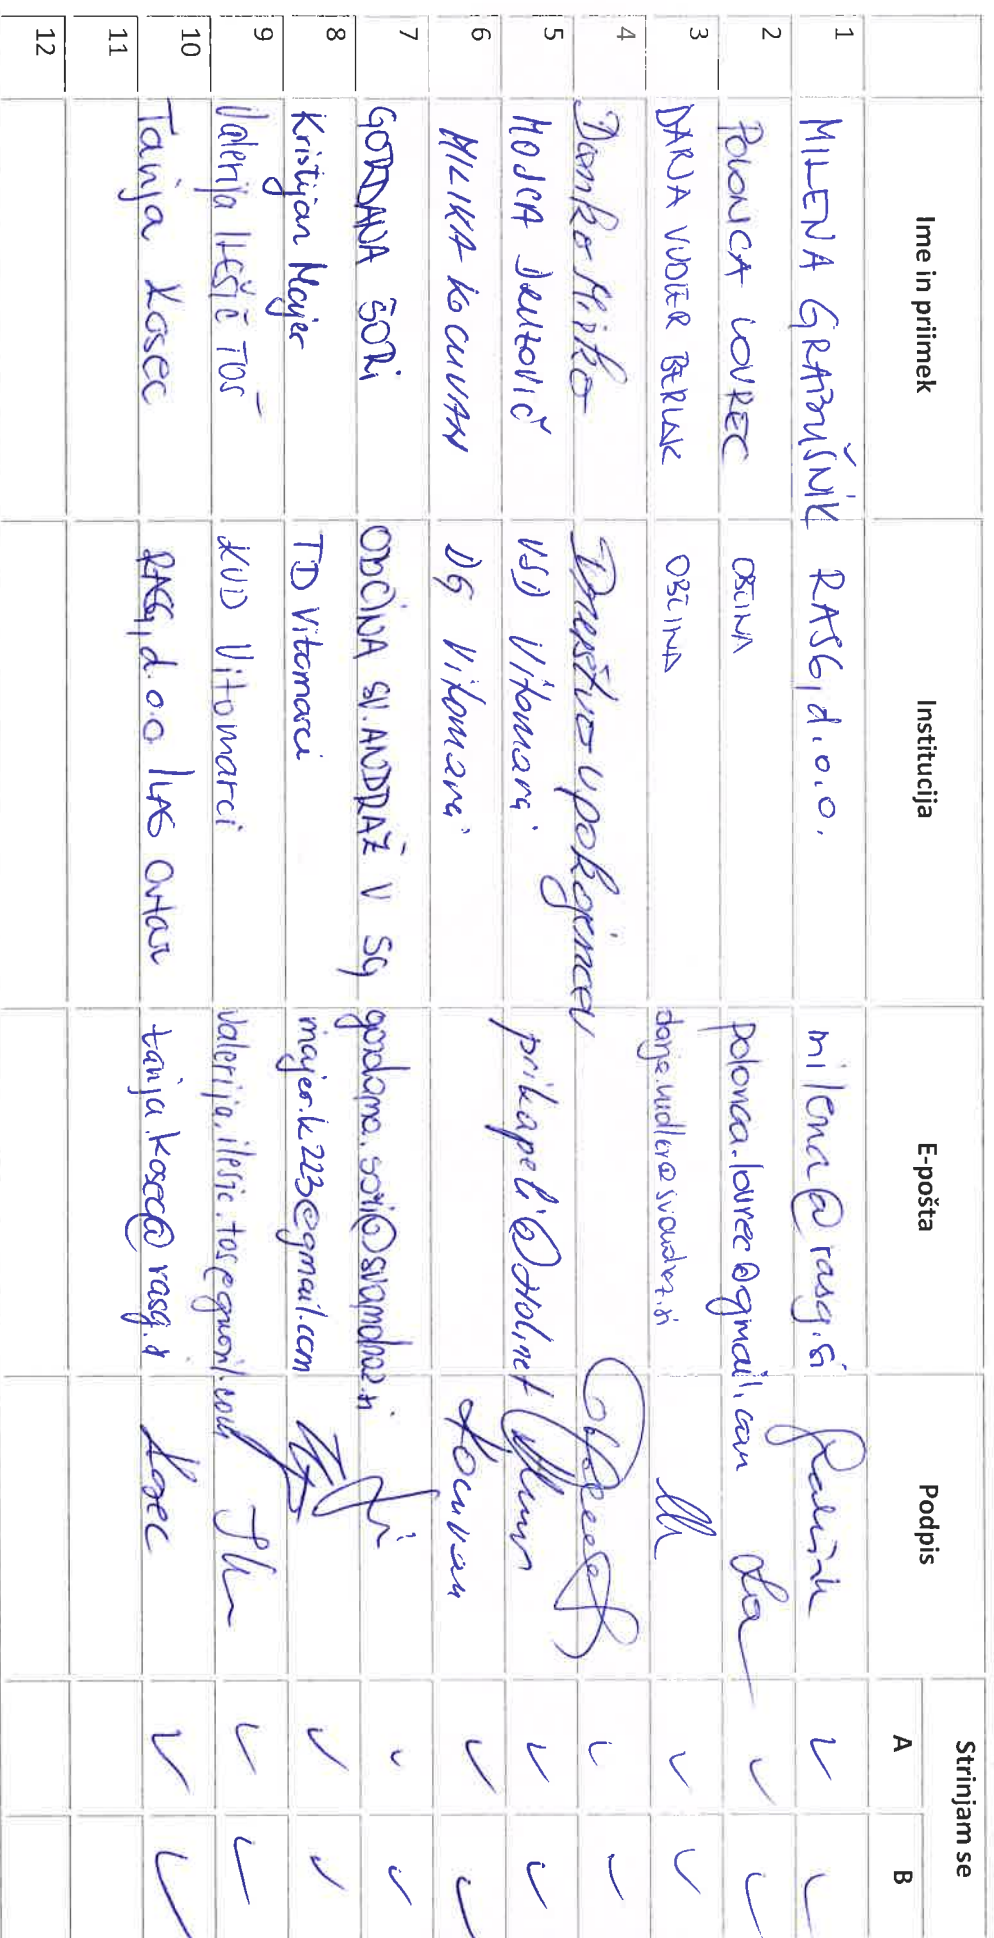 Ime in priimek Institucija E-pošta Podpis Strinjam se
A B
1 MILENA GRABUŠNIK RASG, d.o.o. milena@rasg.si
2 POLONCA LOVREC OBČINA polonca.lovrec@gmail.com
3 DARJA VUDLER BERLAK OBČINA darja.vudler@svandraz.si
4 Danko Mirko Društvo upokojencev
5 MOJCA DRUZOVIČ VSD Vitomarci prikapeli@siol.net
6 MILIKA KOCUVAN DG Vitomarci Kocuvan
7 GORDANA ŠORI OBČINA SV. ANDRAŽ V SG gordana.sori@svandraz.si
8 Kristijan Majer TD Vitomarci majer.k223@gmail.com
9 Valerija ILEŠIČ TOŠ KUD Vitomarci valerija.ilesic.tos@gmail.com
10 Tanja Kosec RASG, d.o.o / LAS Ovtar tanja.kosec@rasg.si Kosec
11
12